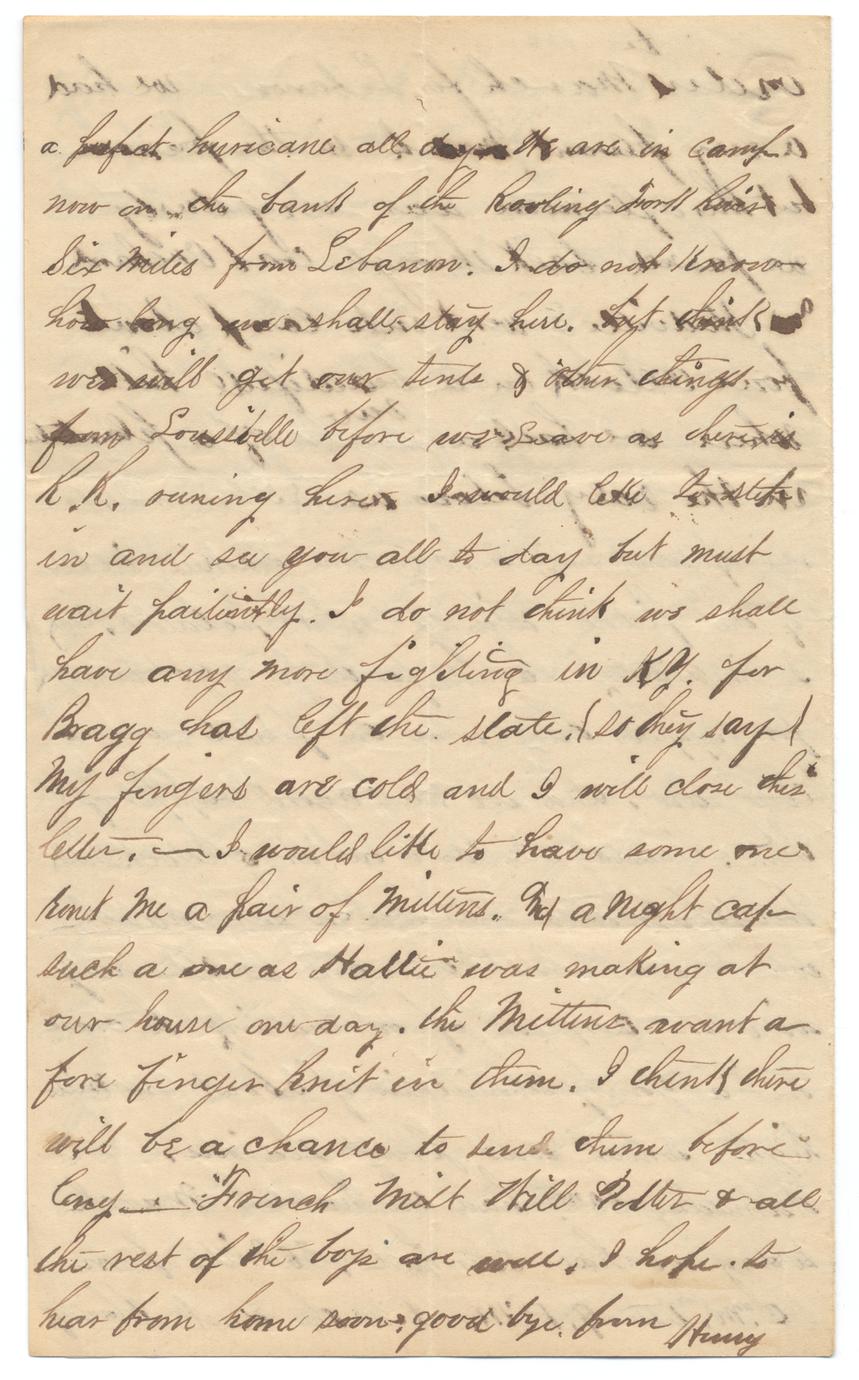 a perfect huricane all day. We are in camp
now on the bank of the Rooling Fork River
Six Miles from Lebanon. I do not Know
how long we shall stay here. but think
we will get our tents & other things
from Louisville before we Leave as there is
R. R. runing here. I would like to step
in and see you all to day but must
wait paitiently. I do not think we shall
have any more fighting in KY. for
Bragg has left the state. (so they say)
My fingers are cold and I will close this
letter. — I would like to have some one
knit Me a pair of Mittens. And a Night cap
such a one as Hattie was making at
our house one day. the Mittens want a
fore finger knit in them. I think there
will be a chance to send them before
long — French Milt Will Potter & all
the rest of the boys are well. I hope to
hear from home soon. good bye. from Henry